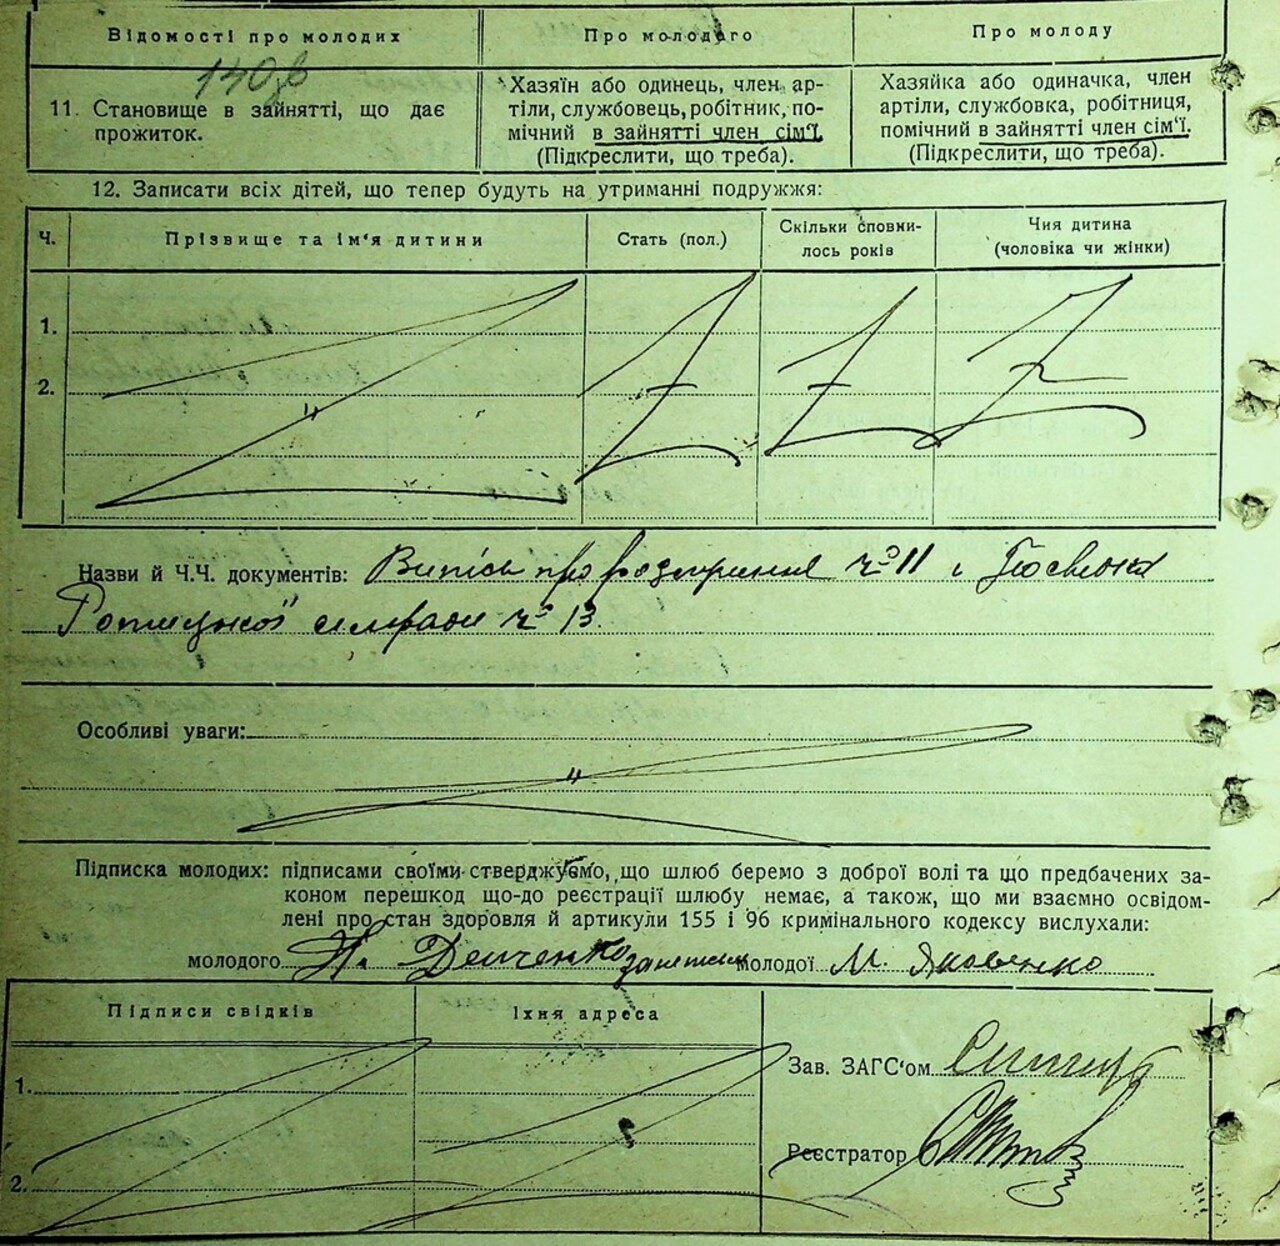 Відомості про молодих
Про молодого
Про молоду
140
11. Становище в зайнятті, що дає
прожиток.
Хазяїн або одинець, член ар-
тіли, службовець, робітник, по-
мічний в зайнятті член сім'ї.
(Підкреслити, що треба).
Хазяйка або одиначка, член
артіли, службовка, робітниця,
помічний в зайнятті член сім'ї.
(Підкреслити, що треба).
12. Записати всіх дітей, що тепер будуть на утриманні подружжя:
Ч.
Прізвище та ім'я дитини
Стать (пол.)
Скільки сповни-
лось років
Чия дитина
(чоловіка чи жінки)
1.
2.
Назви й Ч.Ч. документів: Випісь про № 11 і
№ 13.
Особливі уваги:
Підписка молодих: підписами своїми стверджуємо, що шлюб беремо з доброї волі та що предбачених за-
коном перешкод що-до реєстрації шлюбу немає, а також, що ми взаємно освідом-
лені про стан здоровля й артикули 155 і 96 кримінального кодексу вислухали:
молодого Н. Демченко молодої М. Яковенко
Підписи свідків
Їхня адреса
1.
2.
Зав. ЗАГС'ом
Реєстратор